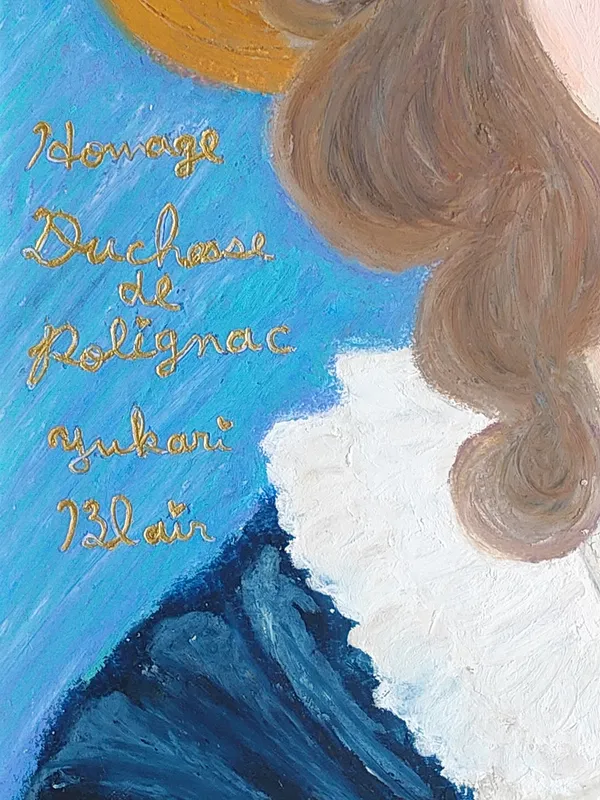 Homage
Duchesse
de
Polignac
yukari
Blair